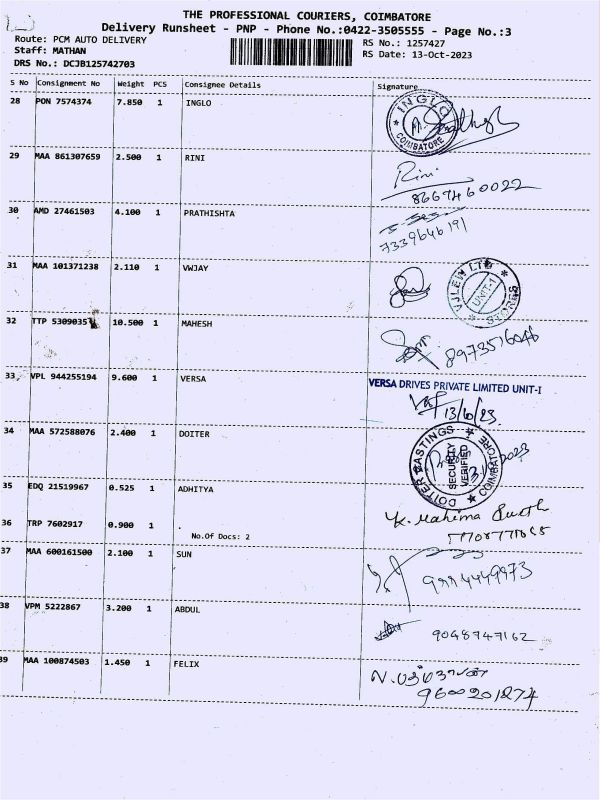 THE PROFESSIONAL COURIERS, COIMBATORE
Delivery Runsheet - PNP - Phone No.:0422-3505555 - Page No.:3
Route: PCM AUTO DELIVERY
RS No.: 1257427
Staff: MATHAN
RS Date: 13-Oct-2023
DRS No.: DCJB125742703
S No Consignment No Weight PCS Consignee Details Signature
28 PON 7574374 7.850 1 INGLO
INGLO
COIMBATORE
29 MAA 861307659 2.500 1 RINI
Rini
8667460022
30 AMD 27461503 4.100 1 PRATHISHTA
7339646191
31 MAA 101371238 2.110 1 VWJAY
VJLEW LTD
UNIT-1
STORES
32 TTP 5309035 10.500 1 MAHESH
33 VPL 944255194 9.600 1 VERSA
VERSA DRIVES PRIVATE LIMITED UNIT-I
13/10/23
34 MAA 572588076 2.400 1 DOITER
DOITER CASTINGS
SECURITY
VERIFIED
COIMBATORE
35 EDQ 21519967 0.525 1 ADHITYA
K. Mahima
36 TRP 7602917 0.900 1 .
No.Of Docs: 2
37 MAA 600161500 2.100 1 SUN
9994449973
38 VPM 5222867 3.200 1 ABDUL
9048747162
39 MAA 100874503 1.450 1 FELIX
9600201274